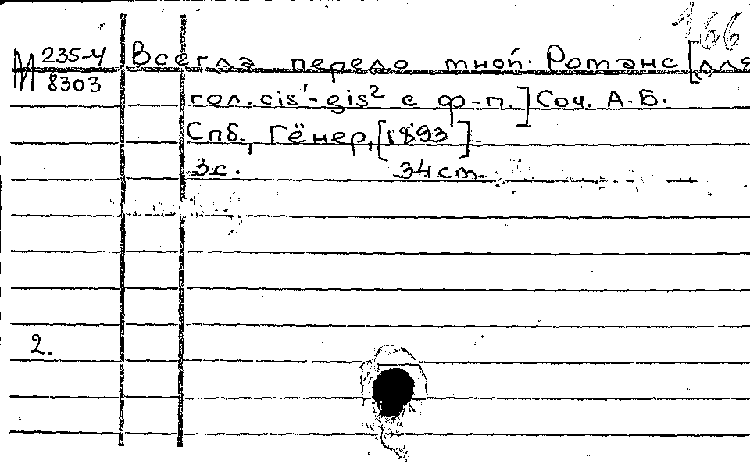 166
М 235-4 Всегда передо мной. Романс [для
8303 гол. cis¹-gis² с ф-п.] Соч. А. Б.
Спб., Гёнер, [1893]
3 с. 34 см.
2.